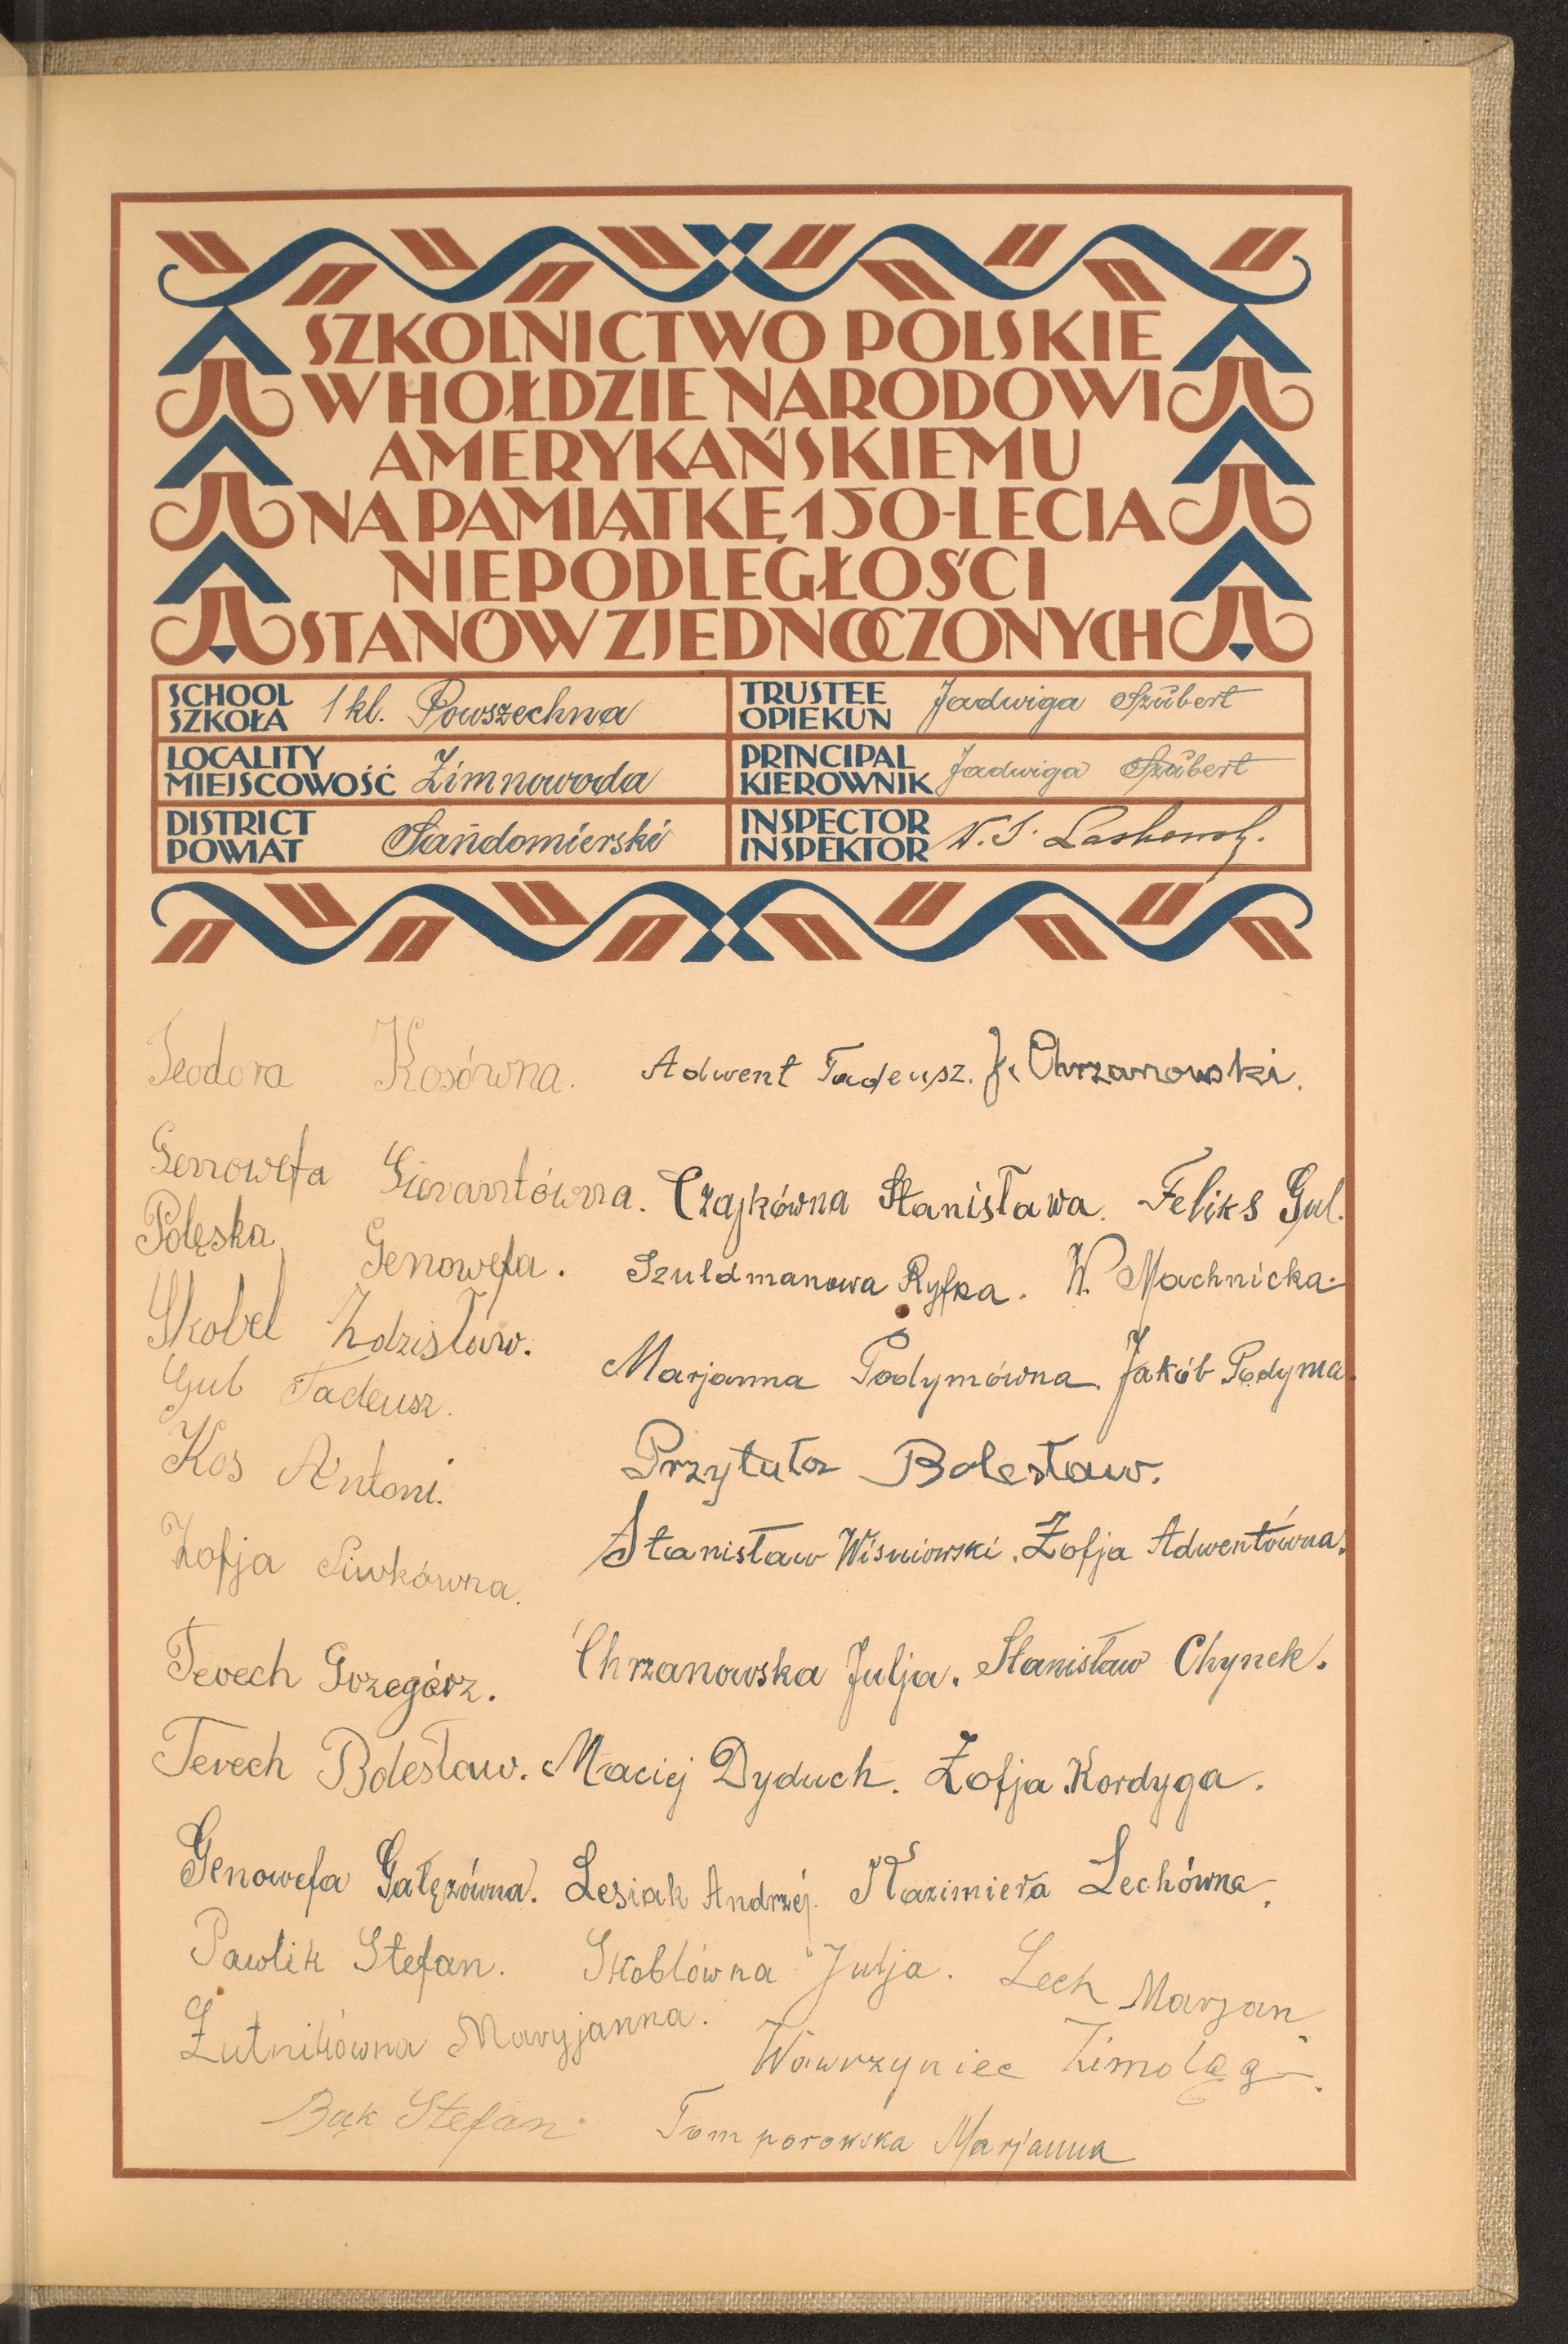 SZKOLNICTWO POLSKIE
W HOŁDZIE NARODOWI
AMERYKAŃSKIEMU
NA PAMIĄTKĘ 150-LECIA
NIEPODLEGŁOŚCI
STANÓW ZJEDNOCZONYCH
SCHOOL
SZKOŁA 1 kl. Powszechna
TRUSTEE
OPIEKUN Jadwiga Szubert
LOCALITY
MIEJSCOWOŚĆ Zimnowoda
PRINCIPAL
KIEROWNIK Jadwiga Szubert
DISTRICT
POWIAT Sandomierski
INSPECTOR
INSPEKTOR
Teodora Kosówna. Adwent Tadeusz. J. Chrzanowski.
Genowefa Gierantówna. Czajkówna Stanisława. Feliks Gul.
Polęska Genowefa. Szuldmanowa Ryfka. W. Machnicka.
Skobel Zdzisław.
Marjanna Podymówna. Jakób Podyma.
Gul Tadeusz.
Kos Antoni. Przytuła Bolesław.
Zofja Siwkówna. Stanisław Wiśniowski. Zofja Adwentówna.
Terech Grzegórz. Chrzanowska Julja. Stanisław Chynek.
Terech Bolesław. Maciej Dyduch. Zofja Kordyga.
Genowefa Gałęzówna. Lesiak Andrzéj. Kazimiera Lechówna.
Pawlik Stefan. Skoblówna Julja. Lech Marjan
Żutnikówna Maryjanna. Wawrzyniec Zimoląg.
Bąk Stefan. Tomporowska Marjanna